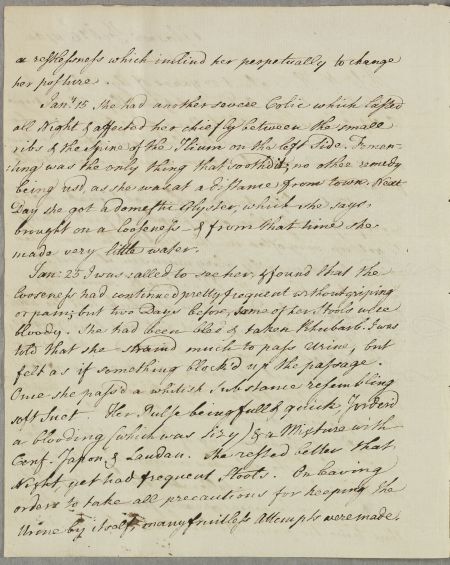 a restlessness which inclin'd her perpetually to change
her posture.
Janry. 15 She had another severe Colic which lasted
all Night & affected her chiefly between the small
ribs & the Spine of the Ilium on the left Side. Fomen-
ting was the only thing that sooth'd it, no other remedy
being us'd, as she was at a Distance from town. Next
Day she got a domestic Clyster, which she says
brought on a looseness & from that time she
made very little water.
Jan: 25 I was called to see her & found that the
looseness had continued pretty frequent without griping
or pain, but two Days before, some of her Stools were
bloody. She had been bled & taken Rhubarb. I was
told that she strain'd much to pass Urine, but
felt as if something block'd up the passage.
Once she pass'd a whitish Substance resembling
soft Suet. Her Pulse being full & quick I order'd
a blooding (which was sizy) & a Mixture with
Conf. Japon. & Laudan. She rested better that
Night yet had frequent Stools. On leaving
orders to take all precautions for keeping the
Urine by itself, many fruitless Attempts were made